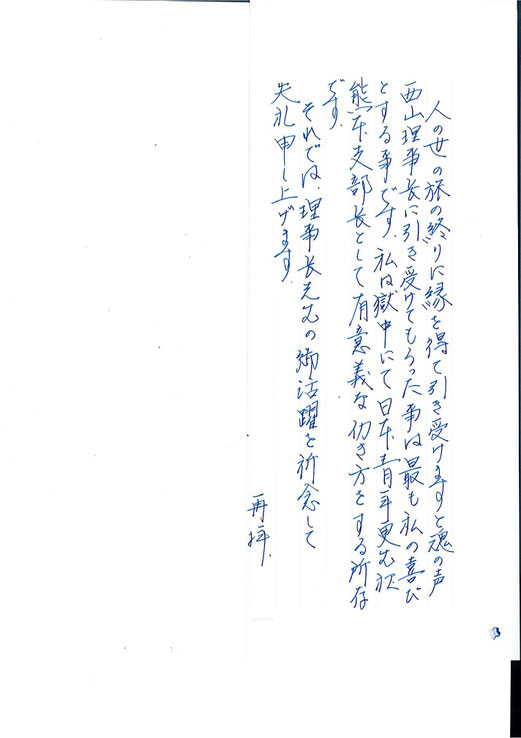 人の世の旅の終りに縁を得て引き受けますと魂の声
西山理事長に引き受けてもらった事は最も私の喜び
とする事です。私は獄中にて日本青年更生
熊本支部長として有意義な仂き方をする所存
です。
それでは、理事長先生の御活躍を祈念して
失礼申し上げます。
再拝、